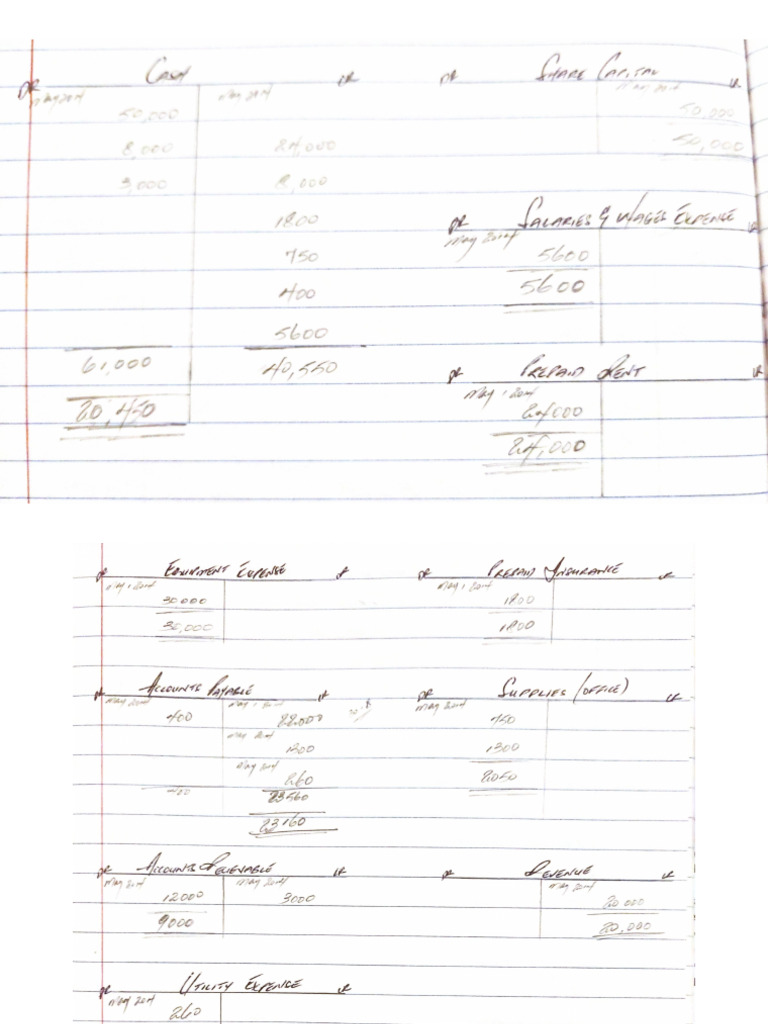 DR Cash CR DR Share Capital CR
May 2014 May 2014 May 2014
50,000 50,000
8,000 24,000 50,000
3,000 8,000
1800 DR Salaries & Wages Expense CR
May 2014
750 5600
400 5600
5600
61,000 40,550 DR Prepaid Rent CR
May 1 2014
24000
20,450 24,000
DR Equipment Expense CR DR Prepaid Insurance CR
May 1 2014 May 1 2014
30,000 1800
30,000 1800
DR Accounts Payable CR DR Supplies (office) CR
May 2014 May 1 2014 May 2014
400 22,000 750
May 2014
1300 1300
May 2014
260 2050
400 23560
23160
DR Accounts Receivable CR DR Revenue CR
May 2014 May 2014 May 2014
12000 3000 20 000
9000 20,000
DR Utility Expense CR
May 2014
260